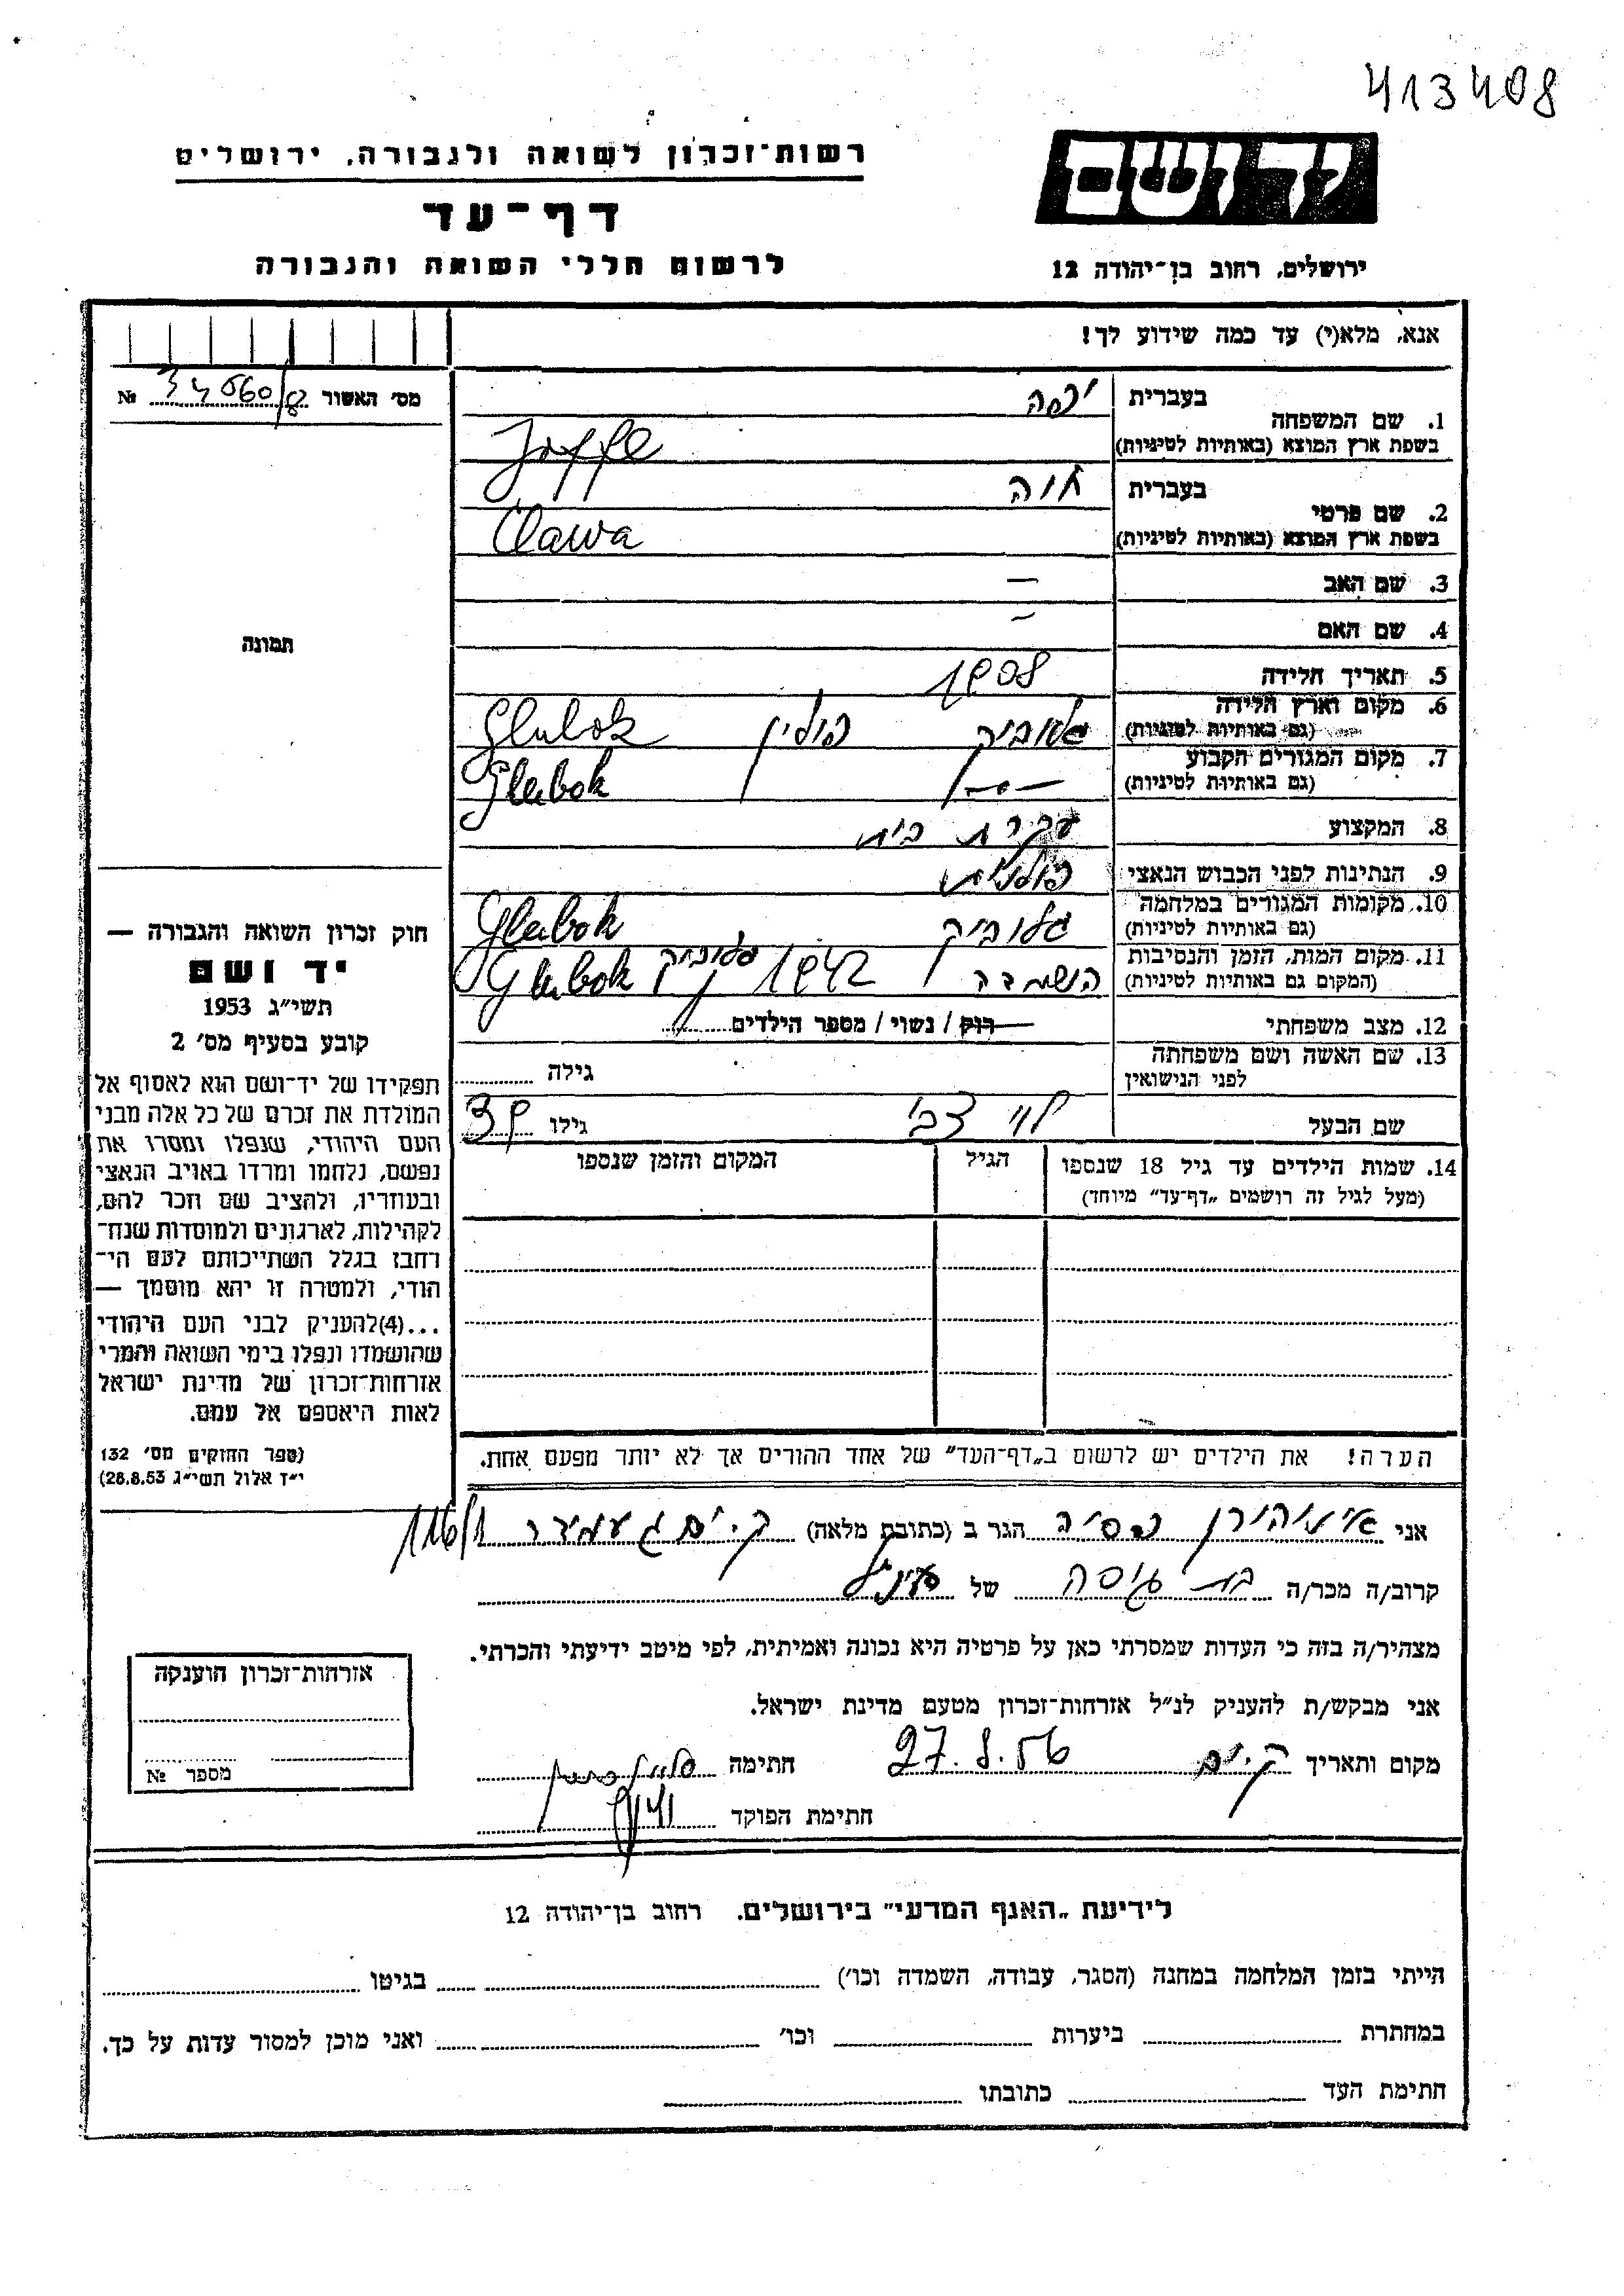 413408
רשות־זכרון לשואה ולגבורה, ירושלים
דף־עד
לרשום חללי השואה והגבורה
יד ושם
ירושלים, רחוב בן־יהודה 12
אנא, מלא(י) עד כמה שידוע לך!
מס׳ האשור № 34060/8
1. שם המשפחה
בעברית יפה
בשפת ארץ המוצא (באותיות לטיניות) Joffe
2. שם פרטי
בעברית חוה
בשפת ארץ המוצא (באותיות לטיניות) Chawa
3. שם האב —
4. שם האם —
5. תאריך הלידה 1908
6. מקום וארץ הלידה
(גם באותיות לטיניות) גלוביק פולין Glubok
7. מקום המגורים הקבוע
(גם באותיות לטיניות) —"— Glubok
8. המקצוע עקרת בית
9. הנתינות לפני הכבוש הנאצי פולנית
10. מקומות המגורים במלחמה
(גם באותיות לטיניות) גלוביק Glubok
11. מקום המות, הזמן והנסיבות
(המקום גם באותיות לטיניות) הושמדה 1942 גלוביק Glubok
12. מצב משפחתי רוק / נשוי / מספר הילדים
13. שם האשה ושם משפחתה
לפני הנישואין גילה
שם הבעל לוי צבי גילו 39
14. שמות הילדים עד גיל 18 שנספו
(מעל לגיל זה רושמים „דף־עד" מיוחד)
הגיל
המקום והזמן שנספו
הערה! את הילדים יש לרשום ב„דף־העד" של אחד ההורים אך לא יותר מפעם אחת.
תמונה
חוק זכרון השואה והגבורה —
יד ושם
תשי״ג 1953
קובע בסעיף מס׳ 2
תפקידו של יד־ושם הוא לאסוף אל
המולדת את זכרם של כל אלה מבני
העם היהודי, שנפלו ומסרו את
נפשם, נלחמו ומרדו באויב הנאצי
ובעוזריו, ולהציב שם וזכר להם,
לקהילות, לארגונים ולמוסדות שנח־
רבו בגלל השתייכותם לעם הי־
הודי, ולמטרה זו יהא מוסמך —
...(4)להעניק לבני העם היהודי
שהושמדו ונפלו בימי השואה והמרי
אזרחות־זכרון של מדינת ישראל
לאות היאספם אל עמם.
(ספר החוקים מס׳ 132
י״ד אלול תשי״ג 28.8.53)
אני הגר ב (כתובת מלאה) ק. ים 116/1
קרוב/ה מכר/ה בת גיסה של
מצהיר/ה בזה כי העדות שמסרתי כאן על פרטיה היא נכונה ואמיתית, לפי מיטב ידיעתי והכרתי.
אני מבקש/ת להעניק לנ״ל אזרחות־זכרון מטעם מדינת ישראל.
מקום ותאריך ק. ים 27.8.56 חתימה
חתימת הפוקד
אזרחות־זכרון הוענקה
מספר №
לידיעת „האגף המדעי" בירושלים. רחוב בן־יהודה 12
הייתי בזמן המלחמה במחנה (הסגר, עבודה, השמדה וכו׳) בגיטו
במחתרת ביערות וכו׳ ואני מוכן למסור עדות על כך.
חתימת העד כתובתו